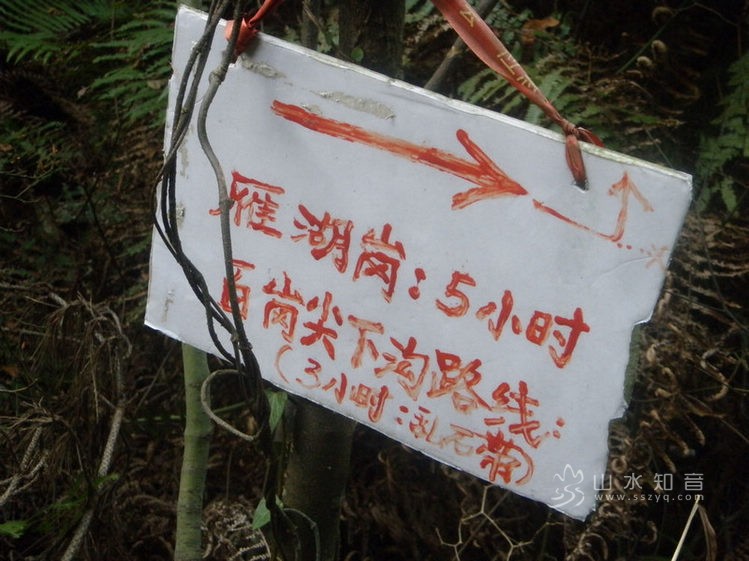 雁湖岗：5小时
百岗尖下沟路线：
（3小时：乱石带）
山水知音
www.sszyq.com